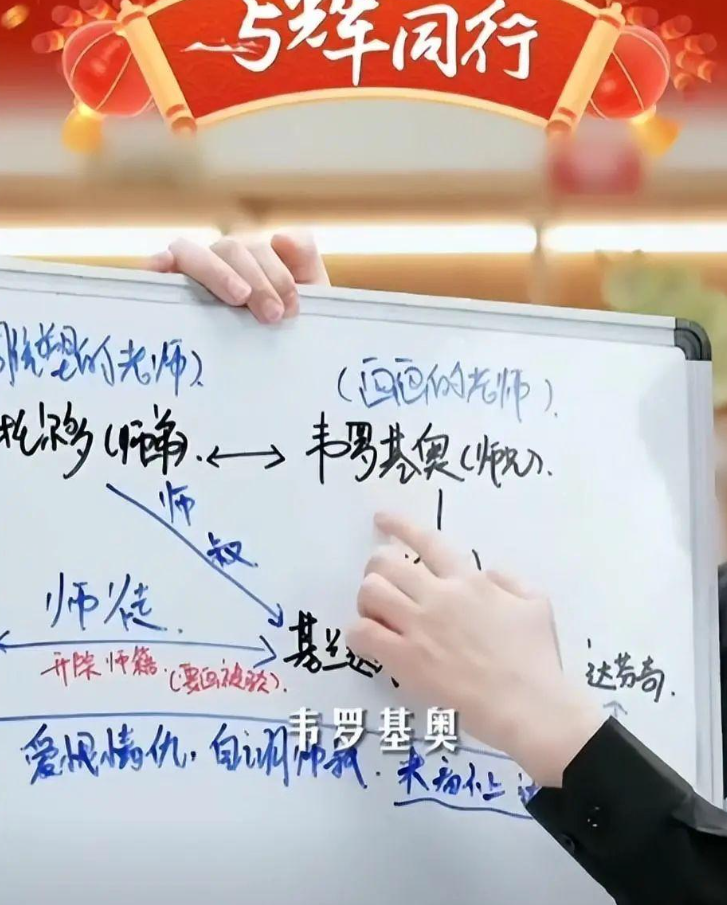 与辉同行
雕塑的老师)
(画画的老师).
(师弟). ↔ 韦罗基奥(师兄).
师
叔
师徒.
开除师籍. (要回被砍).
基兰达
达芬奇.
韦罗基奥
爱恨情仇. 自诩师叔. 来